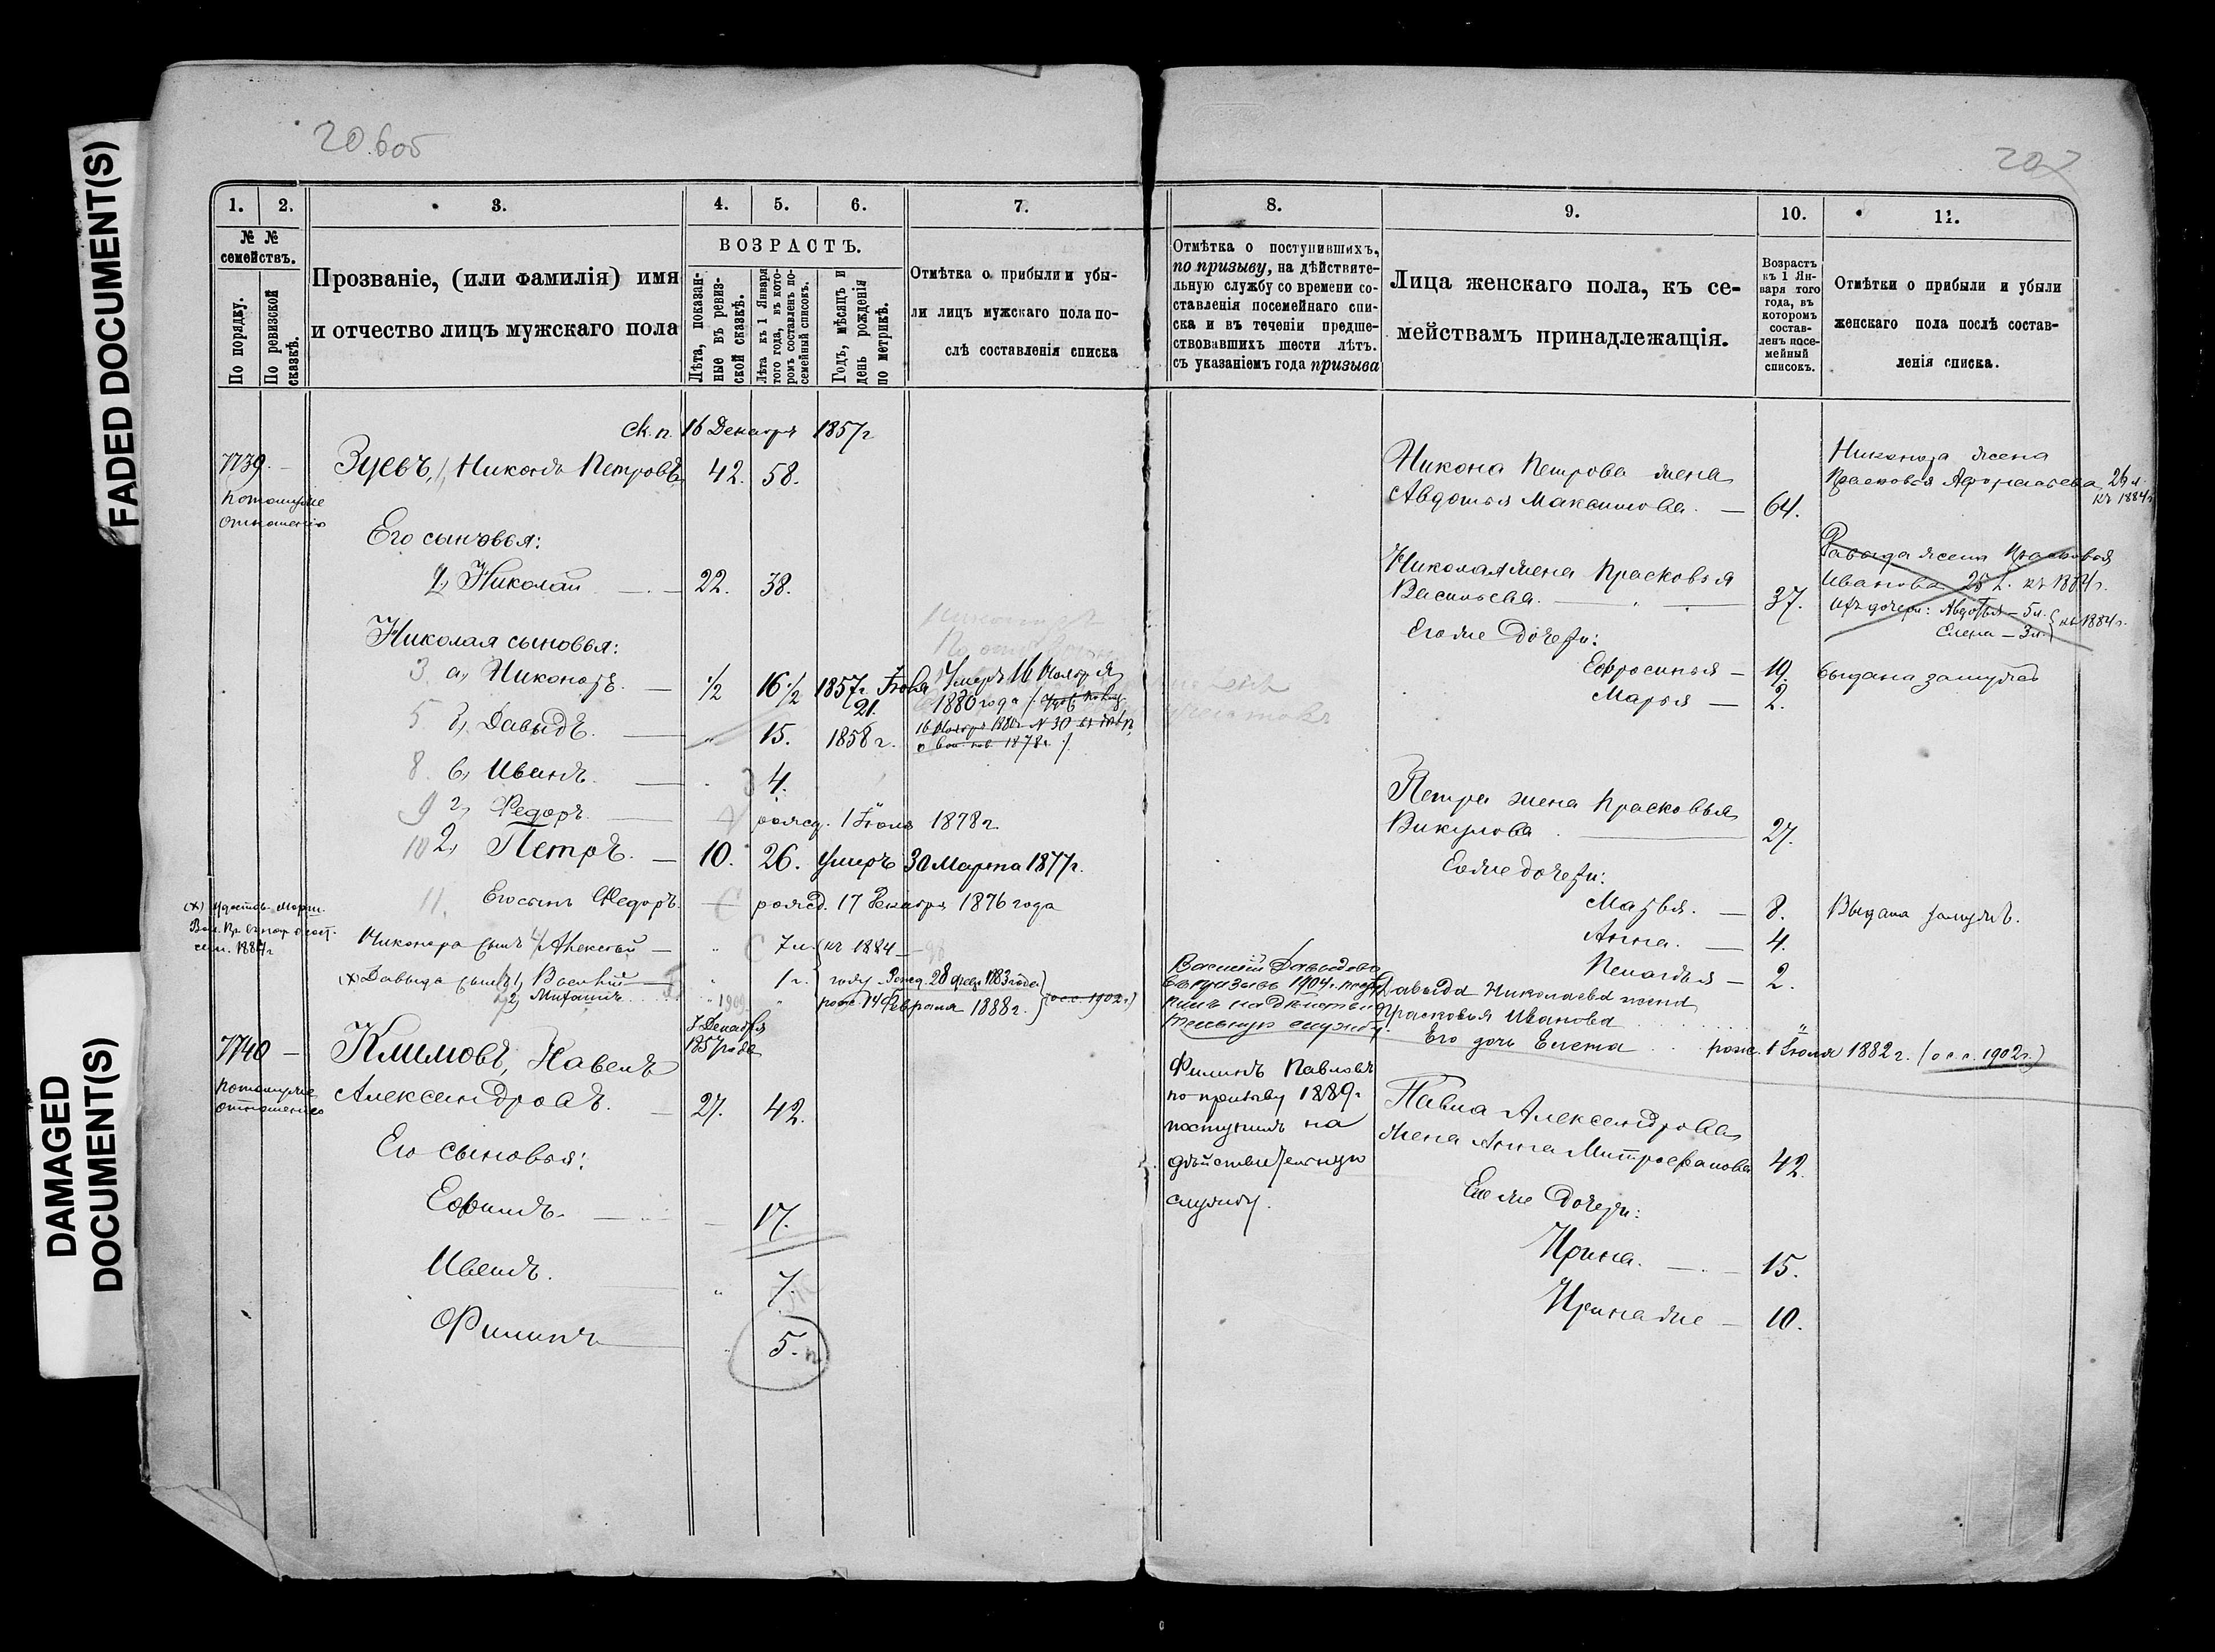 FADED DOCUMENT(S)
DAMAGED
DOCUMENT(S)
20.боб
202
1. 2. 3. 4. 5. 6. 7.
№ №
семействъ.
По порядку.
По ревизской
сказкѣ.
Прозваніе, (или фамилія) имя
и отчество лицъ мужскаго пола
ВОЗРАСТЪ.
Лѣта, показан-
ные въ ревиз-
ской сказкѣ.
Лѣта къ 1 Января
того года, въ кото-
ромъ составленъ по-
семейный списокъ.
Годъ, мѣсяцъ и
день рожденія
по метрикѣ.
Отмѣтка о прибыли и убы-
ли лицъ мужскаго пола по-
слѣ составленія списка
ск. п. 16 Декабря 1857 г
7739. Зуевъ, 1, Никонъ Петровъ 42. 58.
Его сыновья:
2, Николай 22. 38.
Николая сыновья:
3 а, Никоноръ. ½ 16½ 1857 г. Іюня 21. Умеръ 16 Ноября
1880 года
5 б, Давыдъ. 15. 1858 г.
16 Ноября 1880 г. № 30
1878 г.
8. в, Иванъ. 4.
9 г, Федоръ. рожд. 1 Іюня 1878 г.
10 2, Петръ. 10. 26. Умеръ 30 Марта 1877 г.
11. Его сынъ Федоръ. рожд. 17 Декабря 1876 года
сем. 1884 г
Никонора сынъ Алексѣй 7 л. къ 1884
(х) Давыда сынъ 1, Василий 1 г. году Рожд. 28 Февр. 1883 года
2, Митрофанъ рожд. 14 Февраля 1888 г. (о.с.с. 1902 г.)
7 Декабря
1857 года
7740 Климовъ, Павелъ
Александровъ. 27. 42.
Его сыновья:
Ефимъ. 17.
Иванъ. 7.
Филипъ 5.
8. 9. 10. 11.
Отмѣтка о поступившихъ,
по призыву, на дѣйствите-
льную службу со времени со-
ставленія посемейнаго спи-
ска и въ теченіи предше-
ствовавшихъ шести лѣтъ.
съ указаніемъ года призыва
Лица женскаго пола, къ се-
мействамъ принадлежащія.
Возрастъ
къ 1 Ян-
варя того
года, въ
которомъ
состав-
ленъ посе-
мейный
списокъ.
Отмѣтки о прибыли и убыли
женскаго пола послѣ состав-
ленія списка.
Никона Петрова жена
Авдотья Максимова. 64.
Никонора жена
Прасковья Афонасьева 26 л.
къ 1884 г
Николая жена Прасковья
Васильева. 37.
Давыда жена Прасковья
Иванова 25 л. къ 1884 г.
Ихъ дочери: Авдотья – 5 л.
Елена – 3 л. къ 1884 г.
Его же дочери:
Ефросинья 19. выдана замужъ
Марья 2.
Петра жена Прасковья
Викулова. 27.
Его же дочери:
Марья. 8. Выдана замужъ.
Анна. 4.
Пелагея 2.
Василій Давыдовъ
въ призывъ 1904 г. посту
пилъ на дѣйстви
тельную службу.
Давыда Николаева жена
Прасковья Иванова
Его дочь Елена рожд. 1 Іюля 1882 г. (о.с.с. 1902 г.)
Филипъ Павловъ
по призыву 1889 г
поступилъ на
дѣйствительную
службу.
Павла Александрова
жена Анна Митрофанова 42.
Его же дочери:
Ирина. 15.
Ирина же 10.